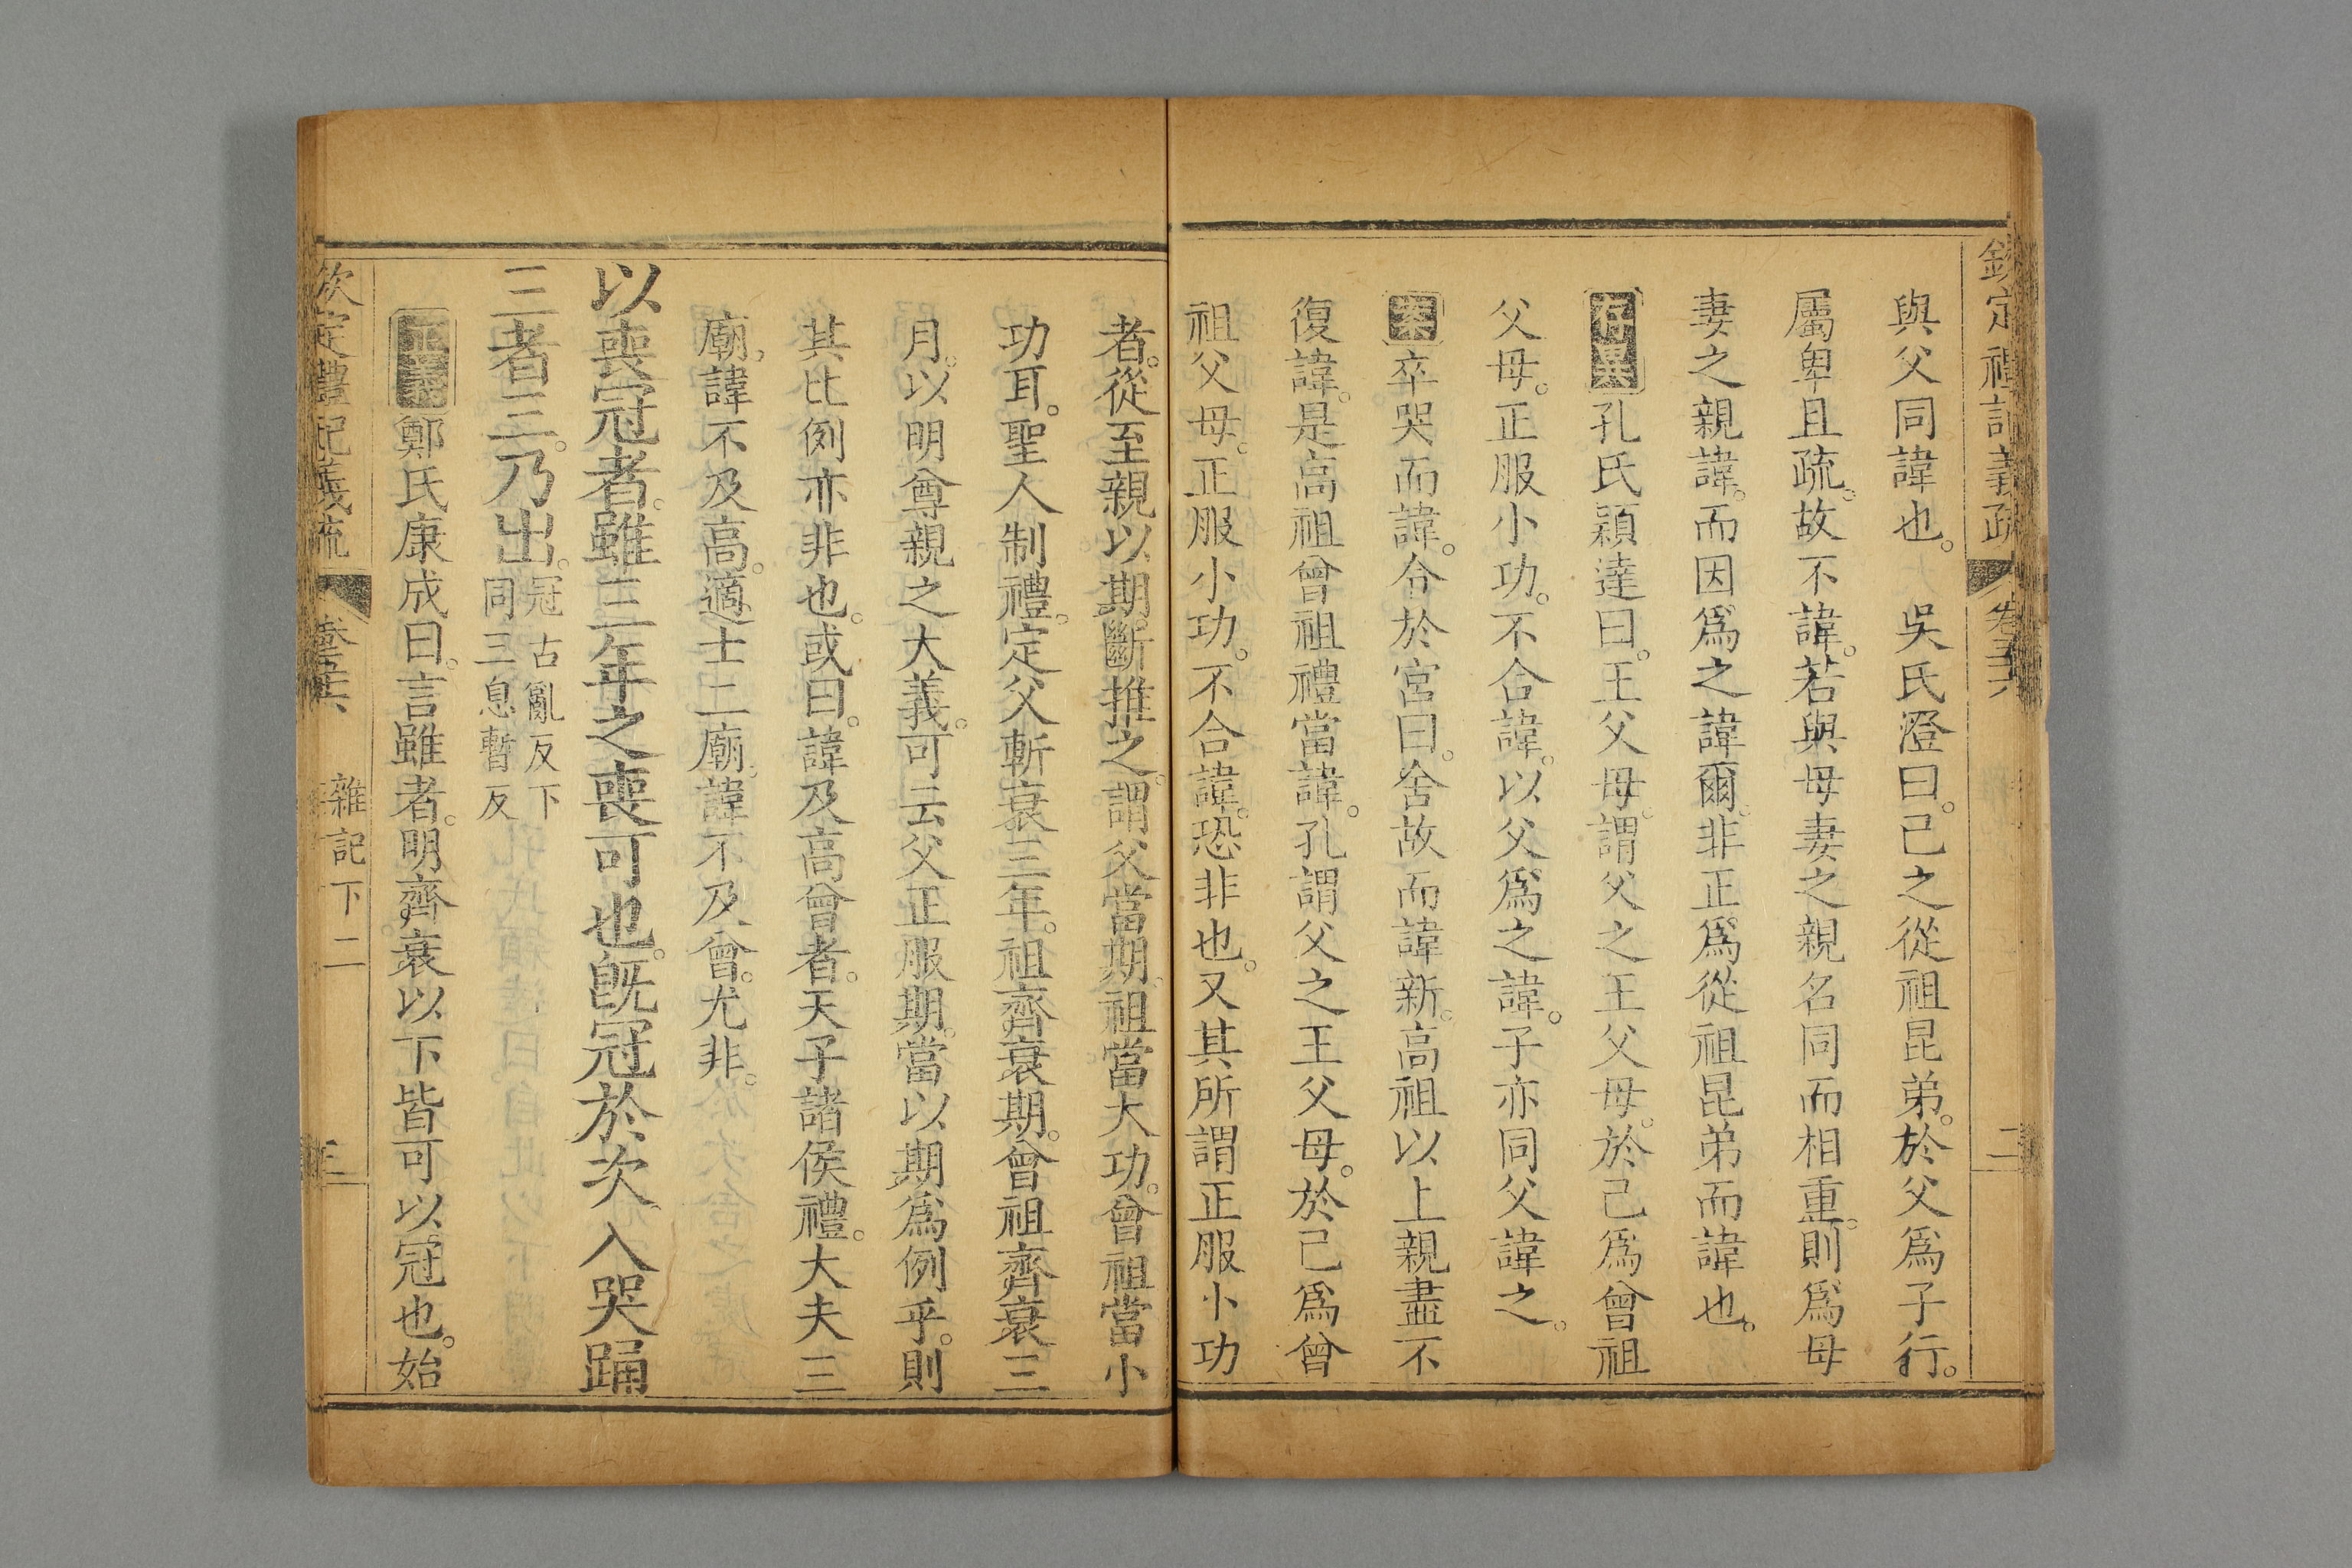 欽定禮記義疏 卷五十六 二
與父同諱也。 吳氏澄曰。己之從祖昆弟。於父爲子行。
屬卑且疏。故不諱。若與母妻之親名同而相重。則爲母
妻之親諱。而因爲之諱爾。非正爲從祖昆弟而諱也。
存異孔氏穎達曰。王父母。謂父之王父母。於己爲曾祖
父母。正服小功。不合諱。以父爲之諱。子亦同父諱之。
案卒哭而諱。令於宮曰。舍故而諱新。高祖以上親盡不
復諱。是高祖曾祖禮當諱。孔謂父之王父母。於己爲曾
祖父母。正服小功。不合諱。恐非也。又其所謂正服小功
者。從至親以期斷推之。謂父當期。祖當大功。曾祖當小
功耳。聖人制禮。定父斬衰三年。祖齊衰期。曾祖齊衰三
月。以明尊親之大義。可云父正服期。當以期爲例乎。則
其比例亦非也。或曰。諱及高曾者。天子諸侯禮。大夫三
廟。諱不及高。適士二廟。諱不及曾。尤非。
以喪冠者。雖三年之喪可也。旣冠於次入哭踊
三者三。乃出。冠古亂反下
同三息暫反
正義鄭氏康成曰。言雖者。明齊衰以下皆可以冠也。始
欽定禮記義疏 雜記下二 三